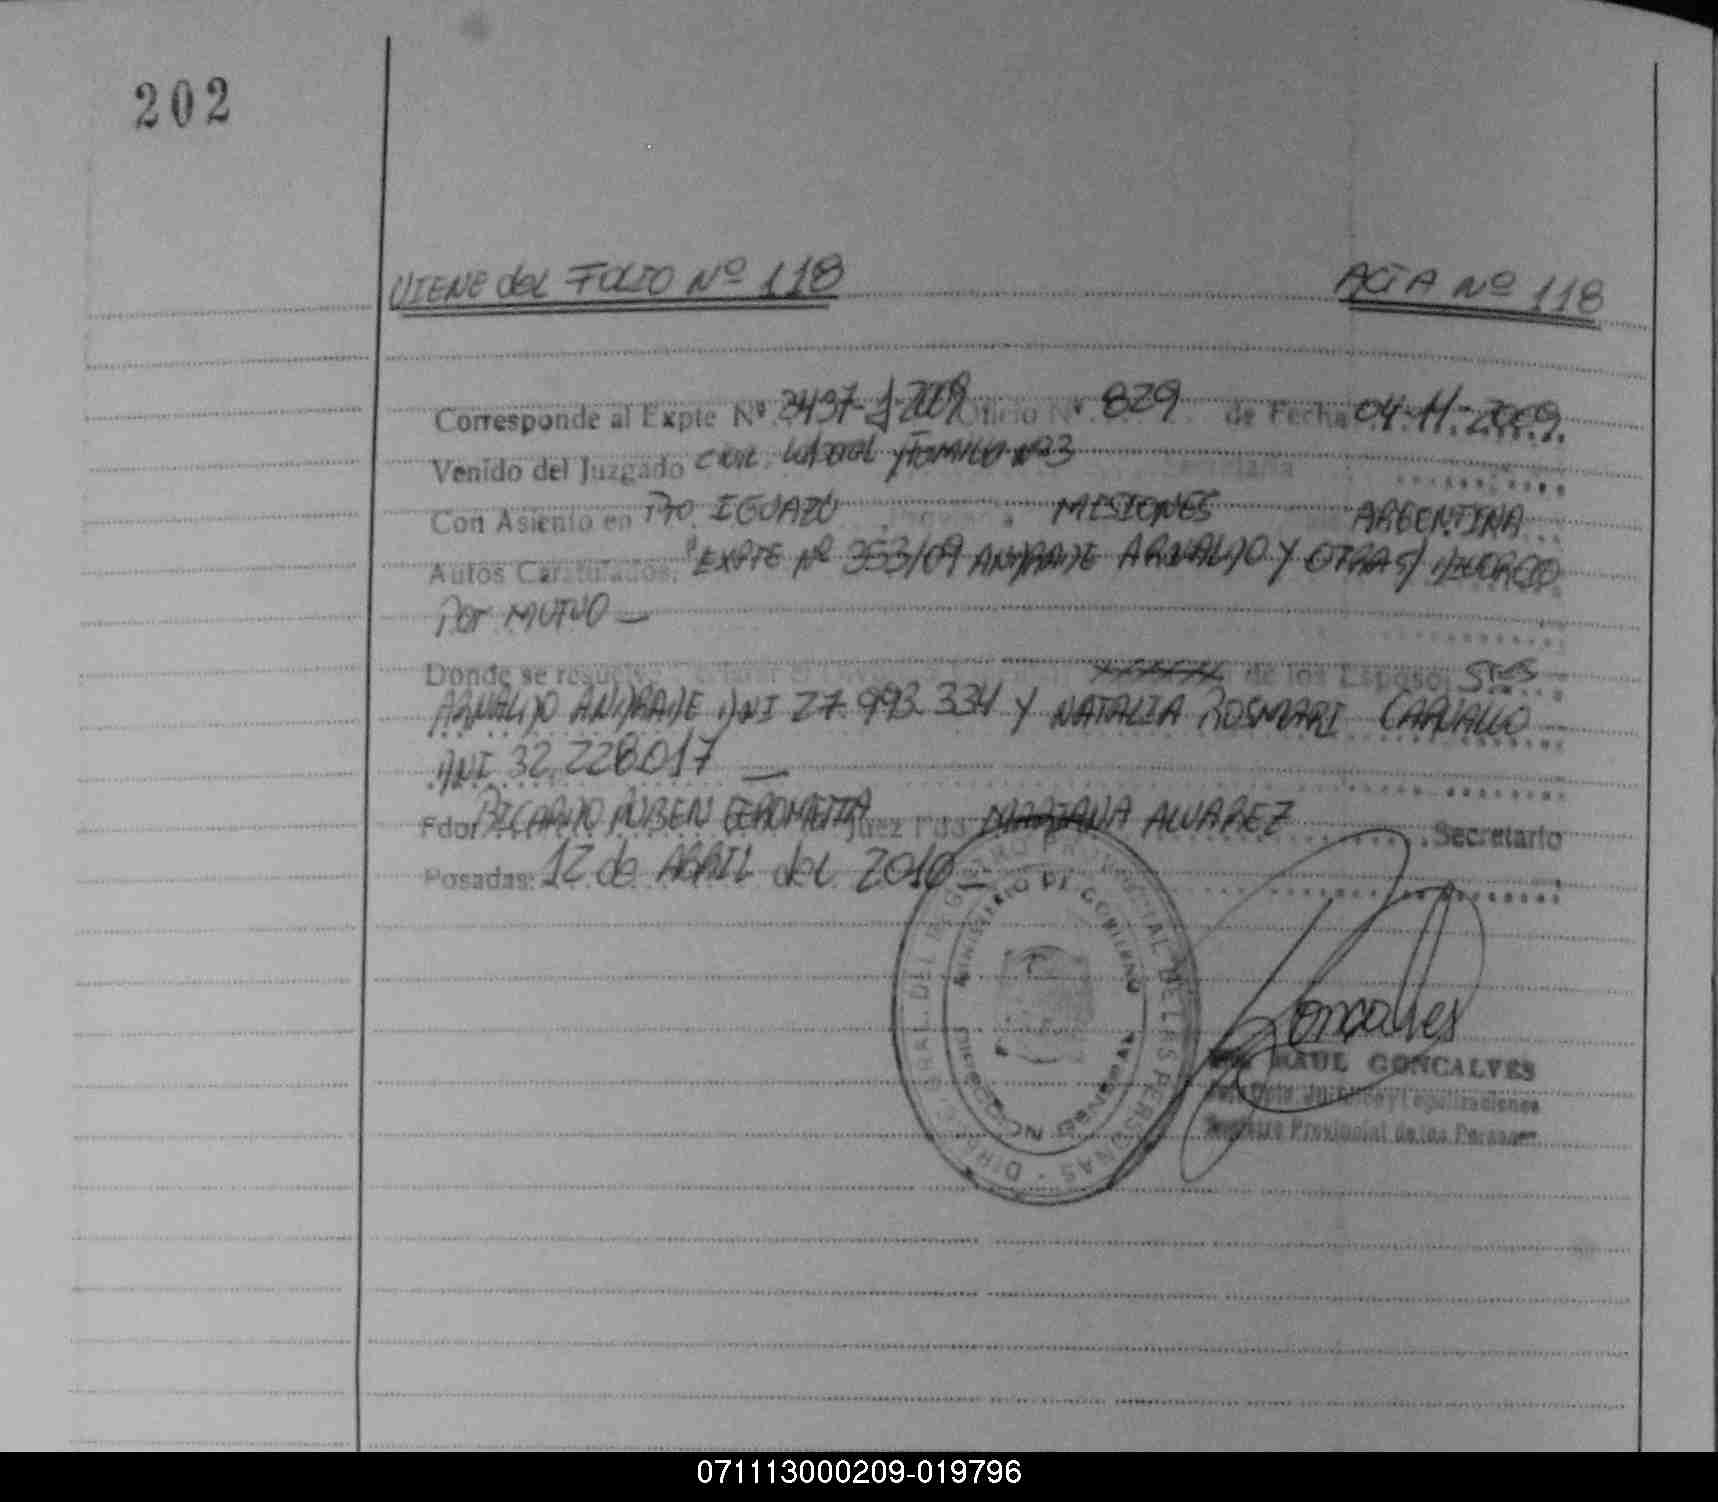 202
VIENE del FOLIO Nº 118
ACTA Nº 118
Corresponde al Expte Nº 3437-J-2009 Oficio Nº 829 de Fecha 04-11-2009
Venido del Juzgado CIVIL, LABORAL y FAMILIA Nº 3 Secretaria
Con Asiento en Pto IGUAZÚ MISIONES ARGENTINA
Autos Caratulados, "EXPTE Nº 353/09 ANDRADE ARNALDO Y OTRA S/ DIVORCIO
Por MUTUO —
Donde se resuelve de los Esposos
ARNALDO ANDRADE DNI 27.993.334 Y NATALIA ROSMARI CARVALLO
DNI 32.228.017 —
Fdo. RICARDO RUBEN GEROMETTA Juez Fdo MARIANA ALVAREZ Secretario
Posadas: 12 de ABRIL del 2010 —
DIREC. GRAL. DEL REGISTRO PROVINCIAL DE LAS PERSONAS
MINISTERIO DE GOBIERNO
Goncalves
RAUL GONCALVES
Jurídico y Legalizaciones
Registro Provincial de las Personas
071113000209-019796